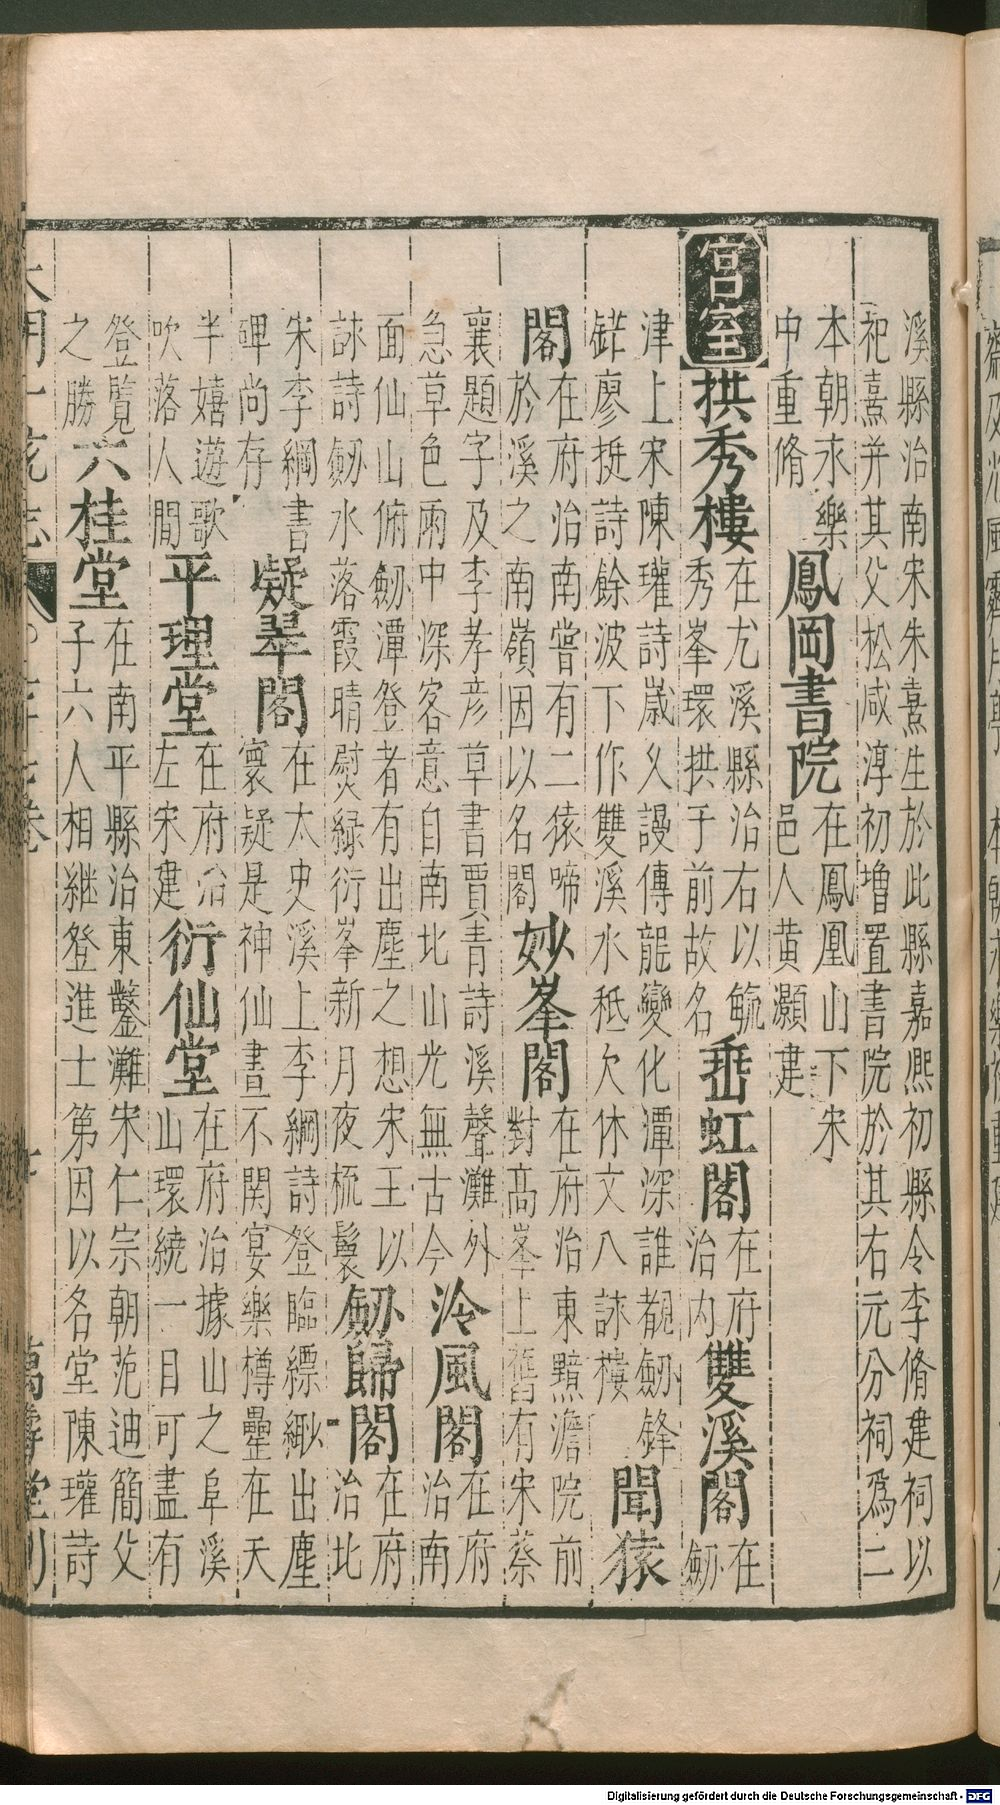 溪縣治南宋朱熹生於此縣嘉熙初縣令李脩建祠以
祀熹并其父松咸淳初増置書院於其右元分祠爲二
本朝永樂
中重脩
鳳岡書院
在鳳凰山下宋
邑人黄灝建
宫室
拱秀樓
在尤溪縣治右以毓
秀峯環拱于前故名
垂虹閣
在府
治内
雙溪閣
在
劒
津上宋陳瓘詩嵗乂謾傳龍變化潭深誰覩劒鋒
鋩廖挺詩餘波下作雙溪水秪欠休文八詠樓
聞猿
閣
在府治南嘗有二猿啼
於溪之南嶺因以名閣
妙峯閣
在府治東黯澹院前
對髙峯上舊有宋蔡
襄題字及李孝彦草書賈青詩溪聲灘外
急草色雨中深客意自南北山光無古今
泠風閣
在府
治南
面仙山俯劒潭登者有出塵之想宋王以
詠詩劒水落霞晴熨緑衍峯新月夜梳鬟
劒歸閣
在府
治北
宋李綱書
碑尚存
凝翠閣
在太史溪上李綱詩登臨縹緲出塵
寰疑是神仙晝不関宴樂樽罍在天
半嬉遊歌
吹落人間
平理堂
在府治
左宋建
衍仙堂
在府治據山之阜溪
山環繞一目可盡有
登覽
之勝
六桂堂
在南平縣治東鑿灘宋仁宗朝范迪簡父
子六人相継登進士第因以名堂陳瓘詩
大明一統志
卷
萬壽堂刊
Digitalisierung gefördert durch die Deutsche Forschungsgemeinschaft - DFG